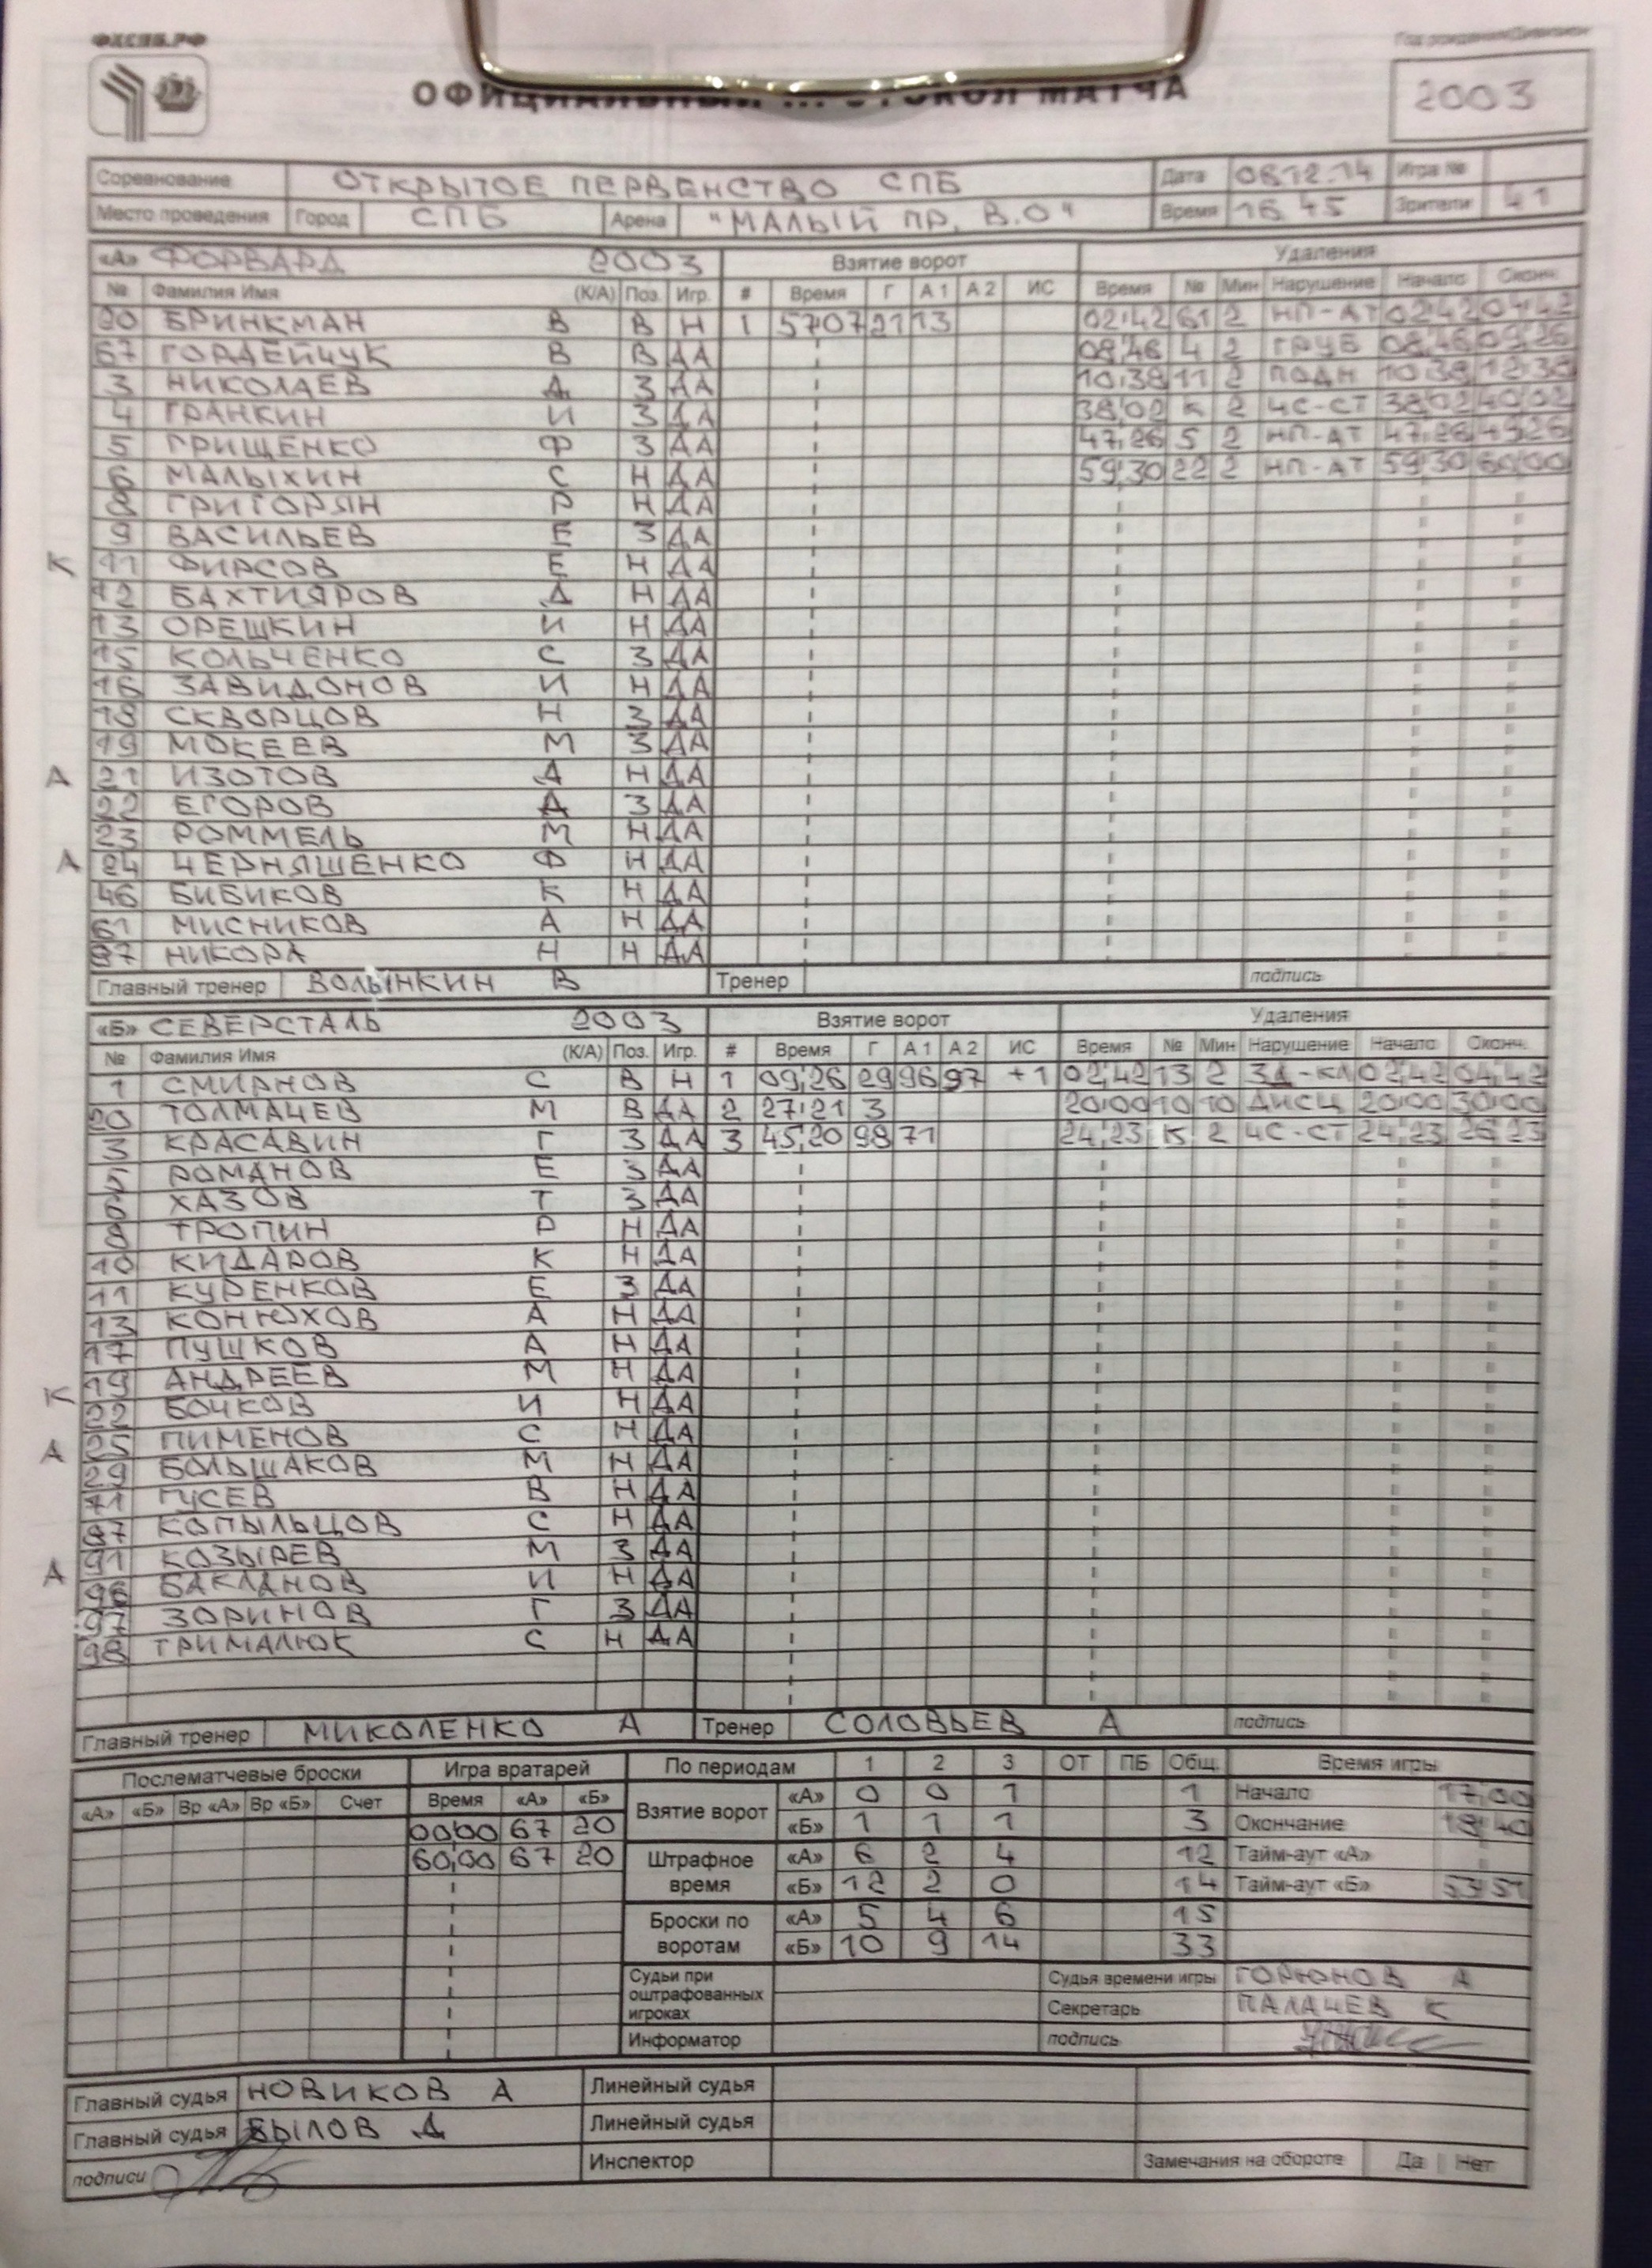 ФХСПБ.РФ
Год рождения/Дивизион
ОФИЦИАЛЬНЫЙ ... ОТОКОЛ МАТЧА
2003
Соревнование ОТКРЫТОЕ ПЕРВЕНСТВО СПБ Дата 08.12.14 Игра №
Место проведения Город СПБ Арена "МАЛЫЙ ПР. В.О" Время 16 45 Зрители 41
«А» ФОРВАРД 2003 Взятие ворот Удаления
№ Фамилия Имя (К/А) Поз. Игр. # Время Г А1 А2 ИС Время № Мин Нарушение Начало Оконч.
20 БРИНКМАН В В Н 1 57 07 21 13 02:42 61 2 НП-АТ 02:42 04:42
67 ГОРДЕЙЧУК В В ДА 08:46 4 2 ГРУБ 08:46 09:26
3 НИКОЛАЕВ Д З ДА 10:38 11 2 ПОДН 10:38 12:38
4 ГРАНКИН И З ДА 38:02 К 2 ЧС-СТ 38:02 40:02
5 ГРИЩЕНКО Ф З ДА 47:26 5 2 НП-АТ 47:26 49:26
6 МАЛЫХИН С Н ДА 59:30 22 2 НП-АТ 59:30 60:00
8 ГРИГОРЯН Р Н ДА
9 ВАСИЛЬЕВ Е З ДА
К 11 ФИРСОВ Е Н ДА
12 БАХТИЯРОВ Д Н ДА
13 ОРЕШКИН И Н ДА
15 КОЛЬЧЕНКО С З ДА
16 ЗАВИДОНОВ И Н ДА
18 СКВОРЦОВ Н З ДА
19 МОКЕЕВ М З ДА
А 21 ИЗОТОВ Д Н ДА
22 ЕГОРОВ Д З ДА
23 РОММЕЛЬ М Н ДА
А 24 ЧЕРНЯШЕНКО Ф Н ДА
46 БИБИКОВ К Н ДА
61 МИСНИКОВ А Н ДА
87 НИКОРА Н Н ДА
Главный тренер ВОЛЫНКИН В Тренер подпись
«Б» СЕВЕРСТАЛЬ 2003 Взятие ворот Удаления
№ Фамилия Имя (К/А) Поз. Игр. # Время Г А1 А2 ИС Время № Мин Нарушение Начало Оконч.
1 СМИРНОВ С В Н 1 09,26 29 96 97 +1 02,42 13 2 ЗД-КЛ 02,42 04,42
20 ТОЛМАЧЕВ М В ДА 2 27:21 3 20:00 10 10 ДИСЦ 20:00 30:00
3 КРАСАВИН Г З ДА 3 45,20 98 71 24,23 К 2 ЧС-СТ 24,23 26,23
5 РОМАНОВ Е З ДА
6 ХАЗОВ Т З ДА
8 ТРОПИН Р Н ДА
10 КИДАРОВ К Н ДА
11 КУРЕНКОВ Е З ДА
13 КОНЮХОВ А Н ДА
17 ПУШКОВ А Н ДА
19 АНДРЕЕВ М Н ДА
К 22 БОЧКОВ И Н ДА
А 25 ПИМЕНОВ С Н ДА
29 БОЛЬШАКОВ М Н ДА
71 ГУСЕВ В Н ДА
87 КОПЫЛЬЦОВ С Н ДА
91 КОЗЫРЕВ М З ДА
А 96 БАКЛАНОВ И Н ДА
97 ЗОРИНОВ Г З ДА
98 ТРИМАЛЮК С Н ДА
Главный тренер МИКОЛЕНКО А Тренер СОЛОВЬЕВ А подпись
Послематчевые броски Игра вратарей По периодам 1 2 3 ОТ ПБ Общ. Время игры
«А» «Б» Вр «А» Вр «Б» Счет Время «А» «Б» Взятие ворот «А» 0 0 1 1 Начало 17,00
00:00 67 20 «Б» 1 1 1 3 Окончание 18,40
60,00 67 20 Штрафное время «А» 6 2 4 12 Тайм-аут «А»
«Б» 12 2 0 14 Тайм-аут «Б» 53 51
Броски по воротам «А» 5 4 6 15
«Б» 10 9 14 33
Судьи при оштрафованных игроках Судья времени игры ГОРЮНОВ А
Секретарь ПАЛАЧЕВ К
Информатор подпись
Главный судья НОВИКОВ А Линейный судья
Главный судья БЫЛОВ Д Линейный судья
подписи Инспектор Замечания на обороте Да Нет